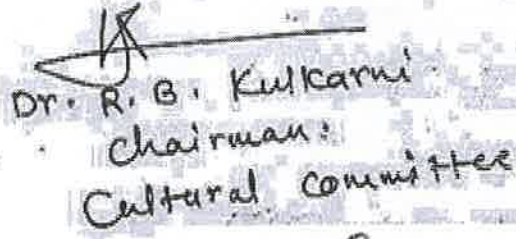 Dr. R. B. Kulkarni
Chairman:
Cultural Committee